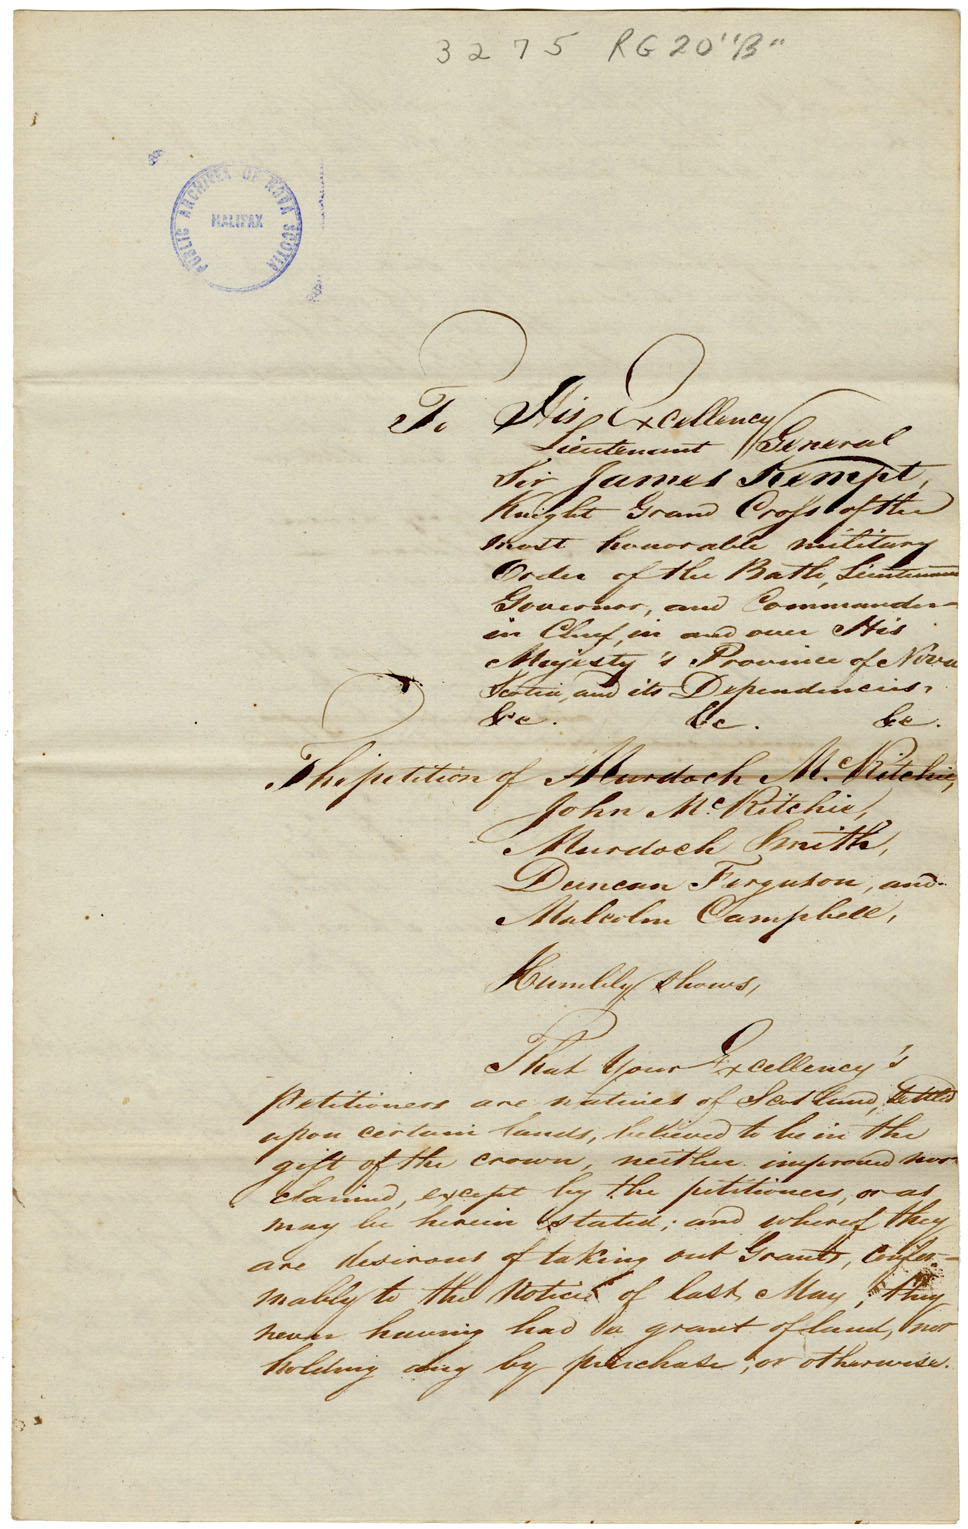 3275 RG 20 "B"
PUBLIC ARCHIVES OF NOVA SCOTIA
HALIFAX
To His Excellency
Lieutenant General
Sir James Kempt,
Knight Grand Cross of the
most honorable military
Order of the Bath, Lieutenant
Governor, and Commander-
in Chief, in and over His
Majesty's Province of Nova
Scotia, and its Dependencies,
&c. &c. &c.
The petition of Murdoch McRitchie,
John McRitchie,
Murdoch Smith,
Duncan Ferguson, and
Malcolm Campbell,
Humbly shows,
That Your Excellency's
Petitioners are natives of Scotland, settled
upon certain lands, believed to be in the
gift of the crown, neither improved nor
claimed, except by the petitioners, or as
may be herein stated; and whereof they
are desirous of taking out Grants, confor-
mably to the Notice of last May; they
never having had a grant of land, nor
holding any by purchase, or otherwise.